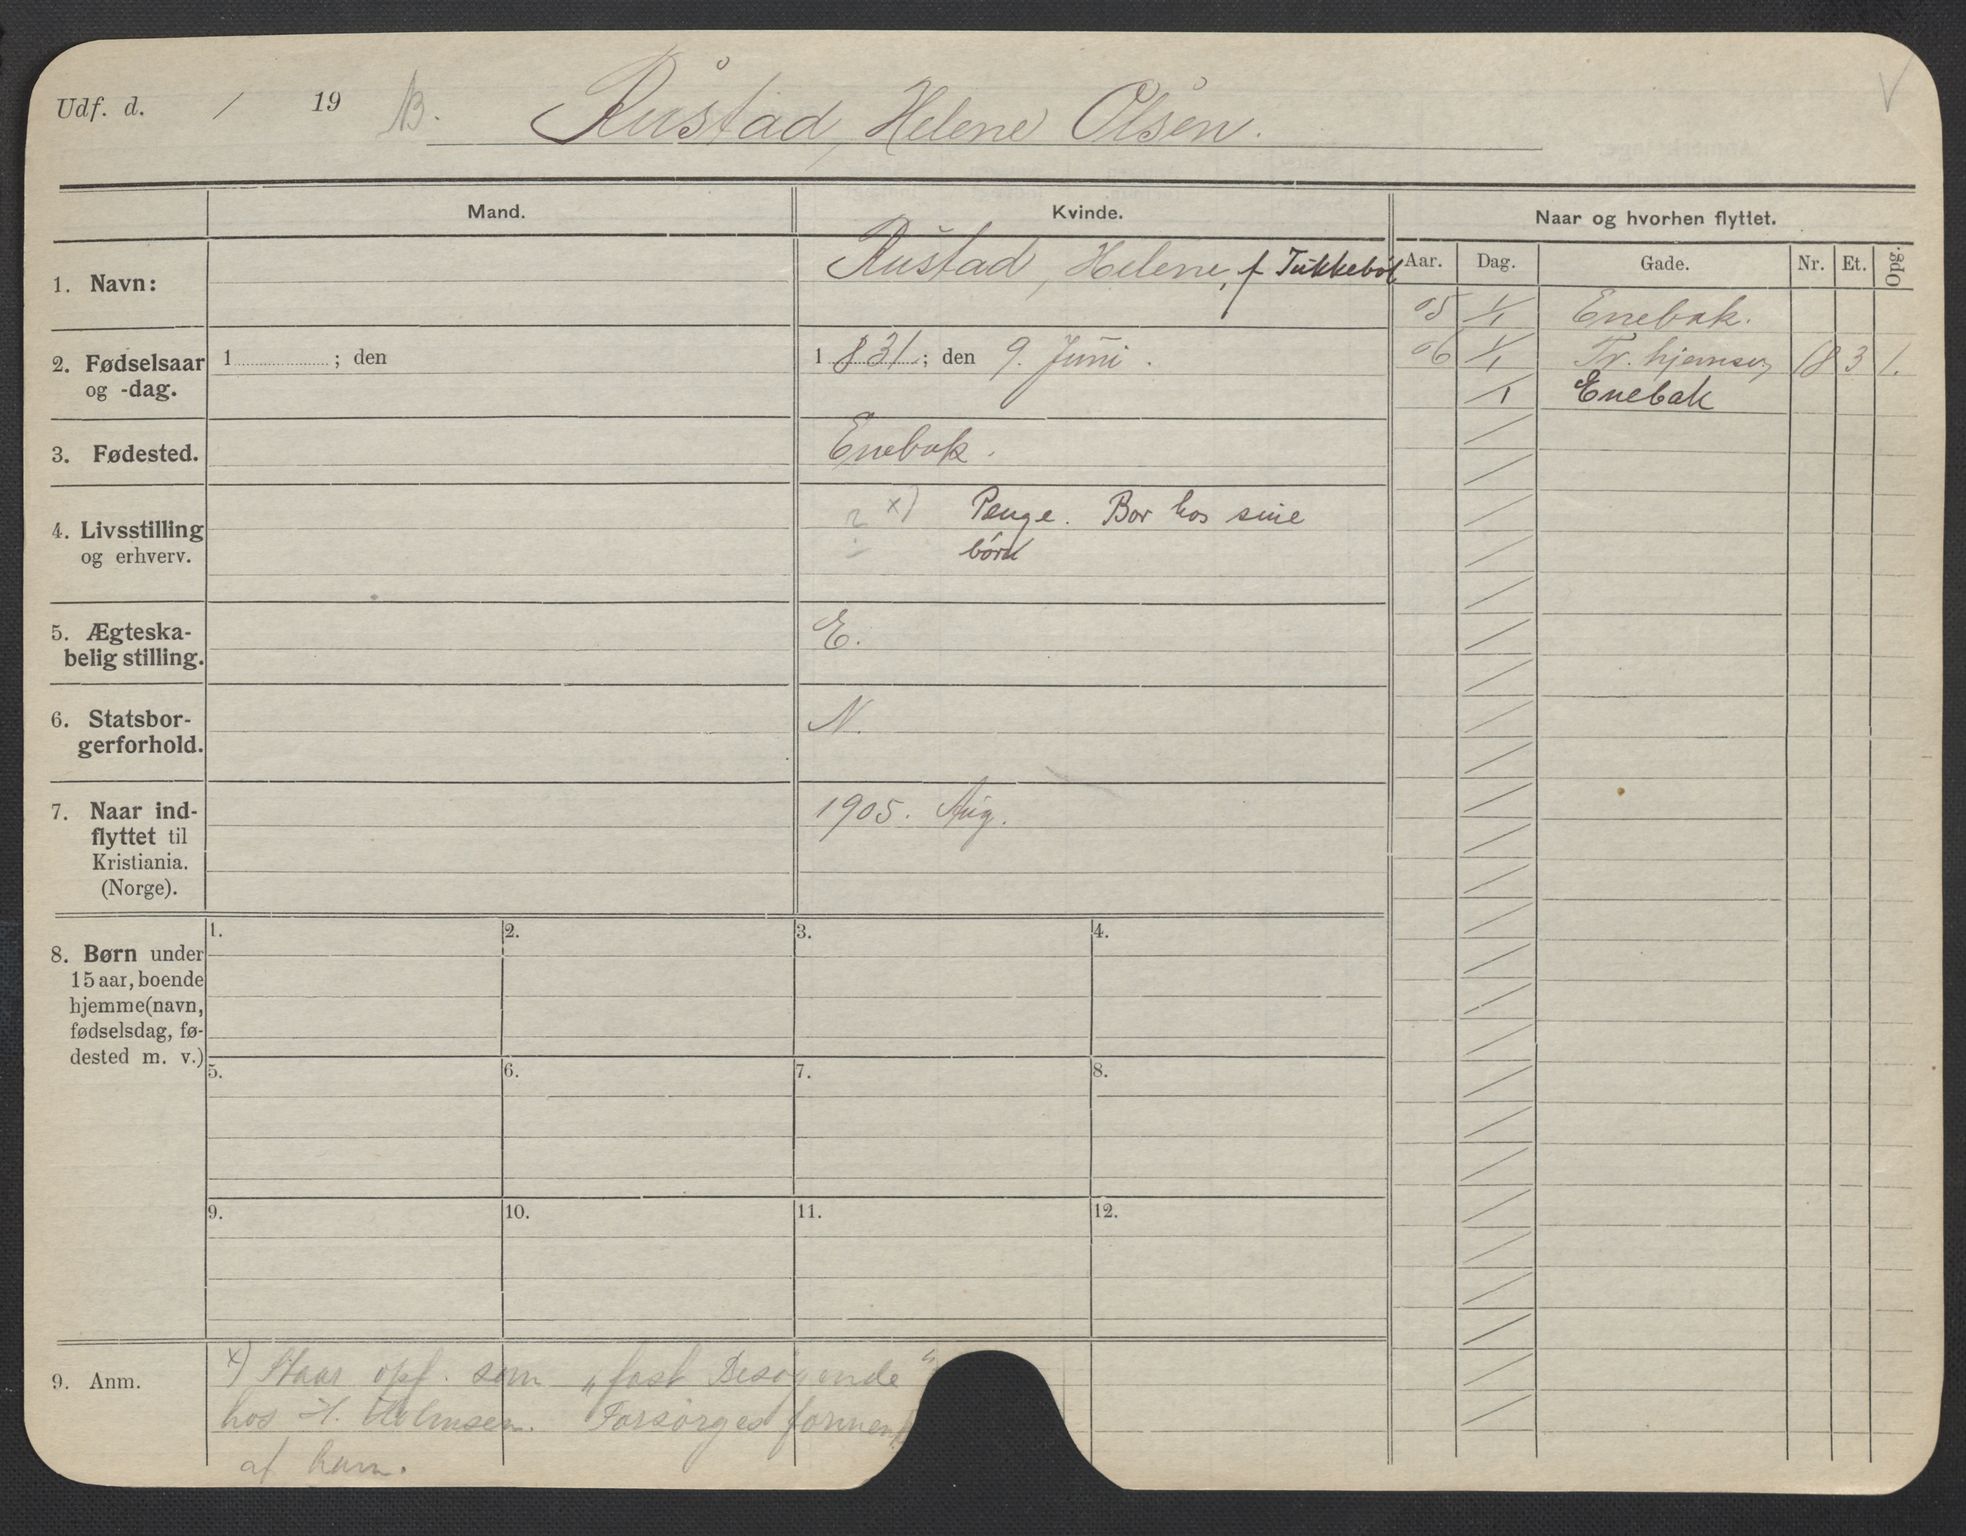 Udf. d. / 19 NB. Rustad, Helene Olsen.
Mand. Kvinde. Naar og hvorhen flyttet.
Aar. Dag. Gade. Nr. Et. Opg.
1. Navn: Rustad, Helene, f Tukkebøl
05 1/1 Enebak.
2. Fødselsaar
og -dag. 1 ; den 1 831 ; den 9. Juni.
06 1/1 18 3 1.
/1 Enebak
3. Fødested. Enebak.
4. Livsstilling
og erhverv. x) Penge. Bor hos sine
børn
5. Ægteska-
belig stilling. E.
6. Statsbor-
gerforhold. N.
7. Naar ind-
flyttet til
Kristiania.
(Norge). 1905. Aug.
8. Børn under
15 aar, boende
hjemme (navn,
fødselsdag, fø-
dested m. v.)
1. 2. 3. 4.
5. 6. 7. 8.
9. 10. 11. 12.
9. Anm. x) Staar opf. som „fast Besøgende"
hos H. Holmsen. Forsørges
af ham.